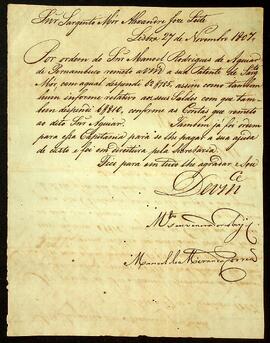 Snr. Sargento Mór Alexandre Joze Leite
Lisboa 27 de Novembro 1807,
Por ordem do Snr. Manoel Rodrigues de Aguiar
de Pernambuco remeto a a sua Patente de Sarg.to
Mór com que dispendi assim como tambem
hum informe relativo aos seus Soldos com que tam
bem dispendi conforme as Contas que remeto
ao dito Snr. Aguiar. Tambem já foi ordem
para essa Capitania para se lhe pagar a sua ajuda
de custo e foi em direitura pela Secretaria.
Fico para em tudo lhe agradar e Sou
De
Manoel de Miranda Correa